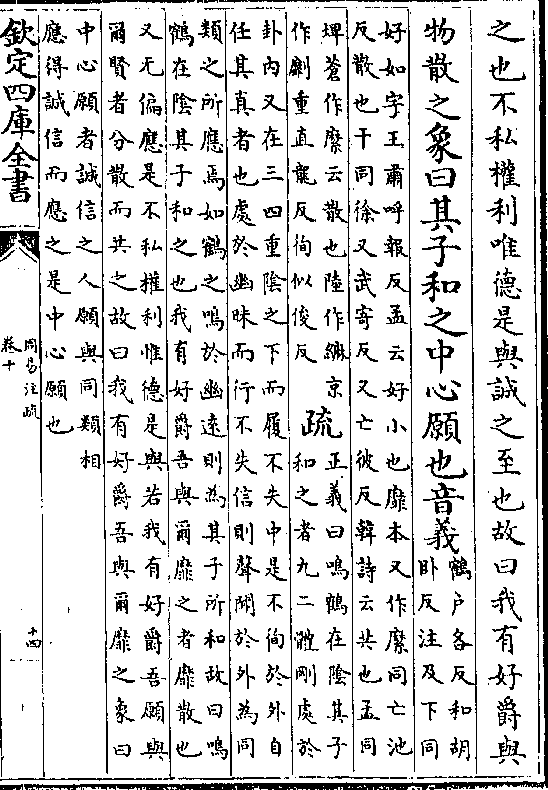 之也不私權利唯德是與誠之至也故曰我有好爵與
物散之象曰其子和之中心願也音義
鶴户各反和胡
卧反注及下同
好如字王肅呼報反孟云好小也靡本又作縻同亡池
反散也干同徐又武寄反又亡彼反韓詩云共也孟同
埤蒼作縻云散也陸作京
作劘重直龍反徇似俊反
疏
正義曰鳴鶴在陰其子
和之者九二體剛處於
卦内又在三四重陰之下而履不失中是不徇於外自
任其真者也處於幽昧而行不失信則聲聞於外為同
類之所應焉如鶴之鳴於幽逺則為其子所和故曰鳴
鶴在陰其子和之也我有好爵吾與爾靡之者靡散也
又无偏應是不私權利惟德是與若我有好爵吾願與
爾賢者分散而共之故曰我有好爵吾與爾靡之象曰
中心願者誠信之人願與同類相
應得誠信而應之是中心願也
欽定四庫全書
周易注疏
卷十
十四